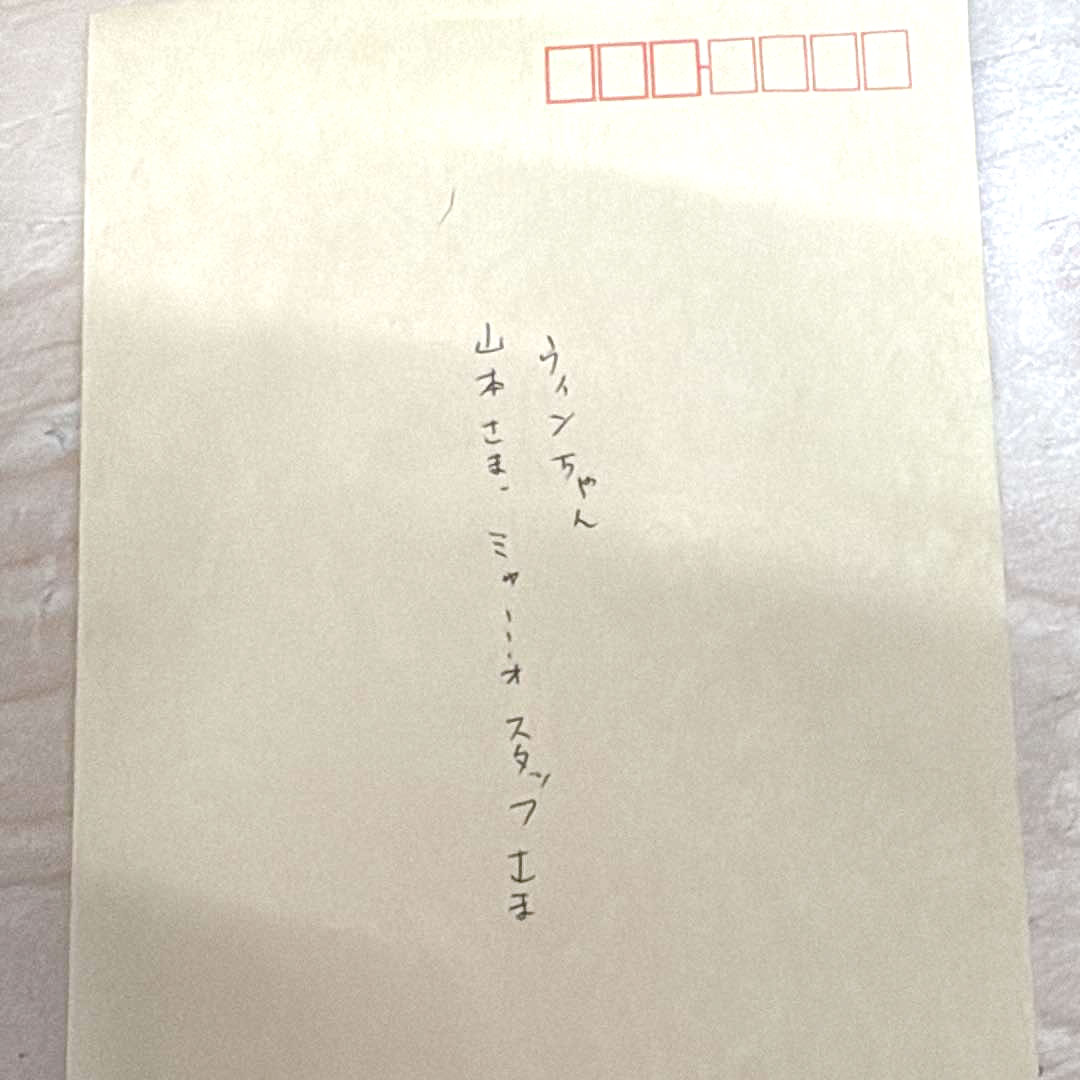 ウィンちゃん
山本さま、ミャーオ スタッフさま